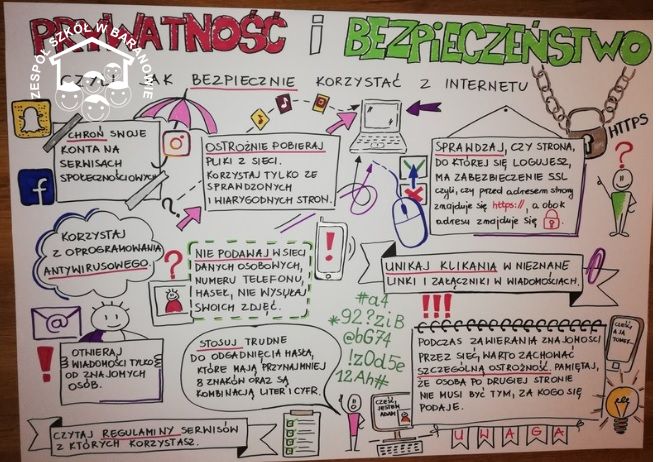 PRYWATNOŚĆ i BEZPIECZEŃSTWO
ZESPÓŁ SZKÓŁ W BARANOWIE
CZYLI JAK BEZPIECZNIE KORZYSTAĆ Z INTERNETU
CHROŃ SWOJE
KONTA NA
SERWISACH
SPOŁECZNOŚCIOWYCH
OSTROŻNIE POBIERAJ
PLIKI Z SIECI.
KORZYSTAJ TYLKO ZE
SPRAWDZONYCH
I WIARYGODNYCH STRON.
SPRAWDZAJ, CZY STRONA,
DO KTÓREJ SIĘ LOGUJESZ,
MA ZABEZPIECZENIE SSL
czyli, czy przed adresem strony
znajduje się https://, a obok
adresu znajduje się
HTTPS
?
?
KORZYSTAJ
Z OPROGRAMOWANIA
ANTYWIRUSOWEGO.
?
NIE PODAWAJ W SIECI
DANYCH OSOBOWYCH,
NUMERU TELEFONU,
HASEŁ, NIE WYSYŁAJ
SWOICH ZDJĘĆ.
!
UNIKAJ KLIKANIA W NIEZNANE
LINKI I ZAŁĄCZNIKI W WIADOMOŚCIACH.
!!!
@
!
OTWIERAJ
WIADOMOŚCI TYLKO
OD ZNAJOMYCH
OSÓB.
STOSUJ TRUDNE
DO ODGADNIĘCIA HASŁA,
KTÓRE MAJĄ PRZYNAJMNIEJ
8 ZNAKÓW ORAZ SĄ
KOMBINACJĄ LITER I CYFR.
#a4
*92?ziB
@bG74
!z0d5e
12Ah#
PODCZAS ZAWIERANIA ZNAJOMOŚCI
PRZEZ SIEĆ, WARTO ZACHOWAĆ
SZCZEGÓLNĄ OSTROŻNOŚĆ. PAMIĘTAJ,
ŻE OSOBA PO DRUGIEJ STRONIE
NIE MUSI BYĆ TYM, ZA KOGO SIĘ
PODAJE.
CZEŚĆ,
A JA
TOMEK.
CZEŚĆ,
JESTEM
ADAM
UWAGA
CZYTAJ REGULAMINY SERWISÓW
Z KTÓRYCH KORZYSTASZ.